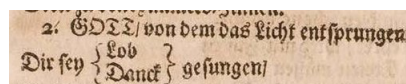 2. GOTT/ von dem das Licht entsprungen
Dir sey { Lob
Danck } gesungen/